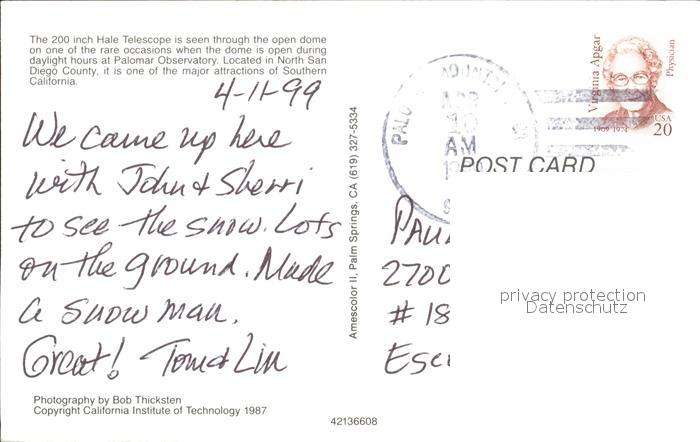 The 200 inch Hale Telescope is seen through the open dome
on one of the rare occasions when the dome is open during
daylight hours at Palomar Observatory. Located in North San
Diego County, it is one of the major attractions of Southern
California.
4-11-99
We came up here
with John & Sherri
to see the snow. Lots
on the ground. Made
a snow man.
Great! Tom & Lin
Photography by Bob Thicksten
Copyright California Institute of Technology 1987
Amescolor II, Palm Springs, CA (619) 327-5334
42136608
Virginia Apgar
Physician
1909-1974
USA
20
APR
10
AM
POST CARD
2700
# 18
privacy protection
Datenschutz